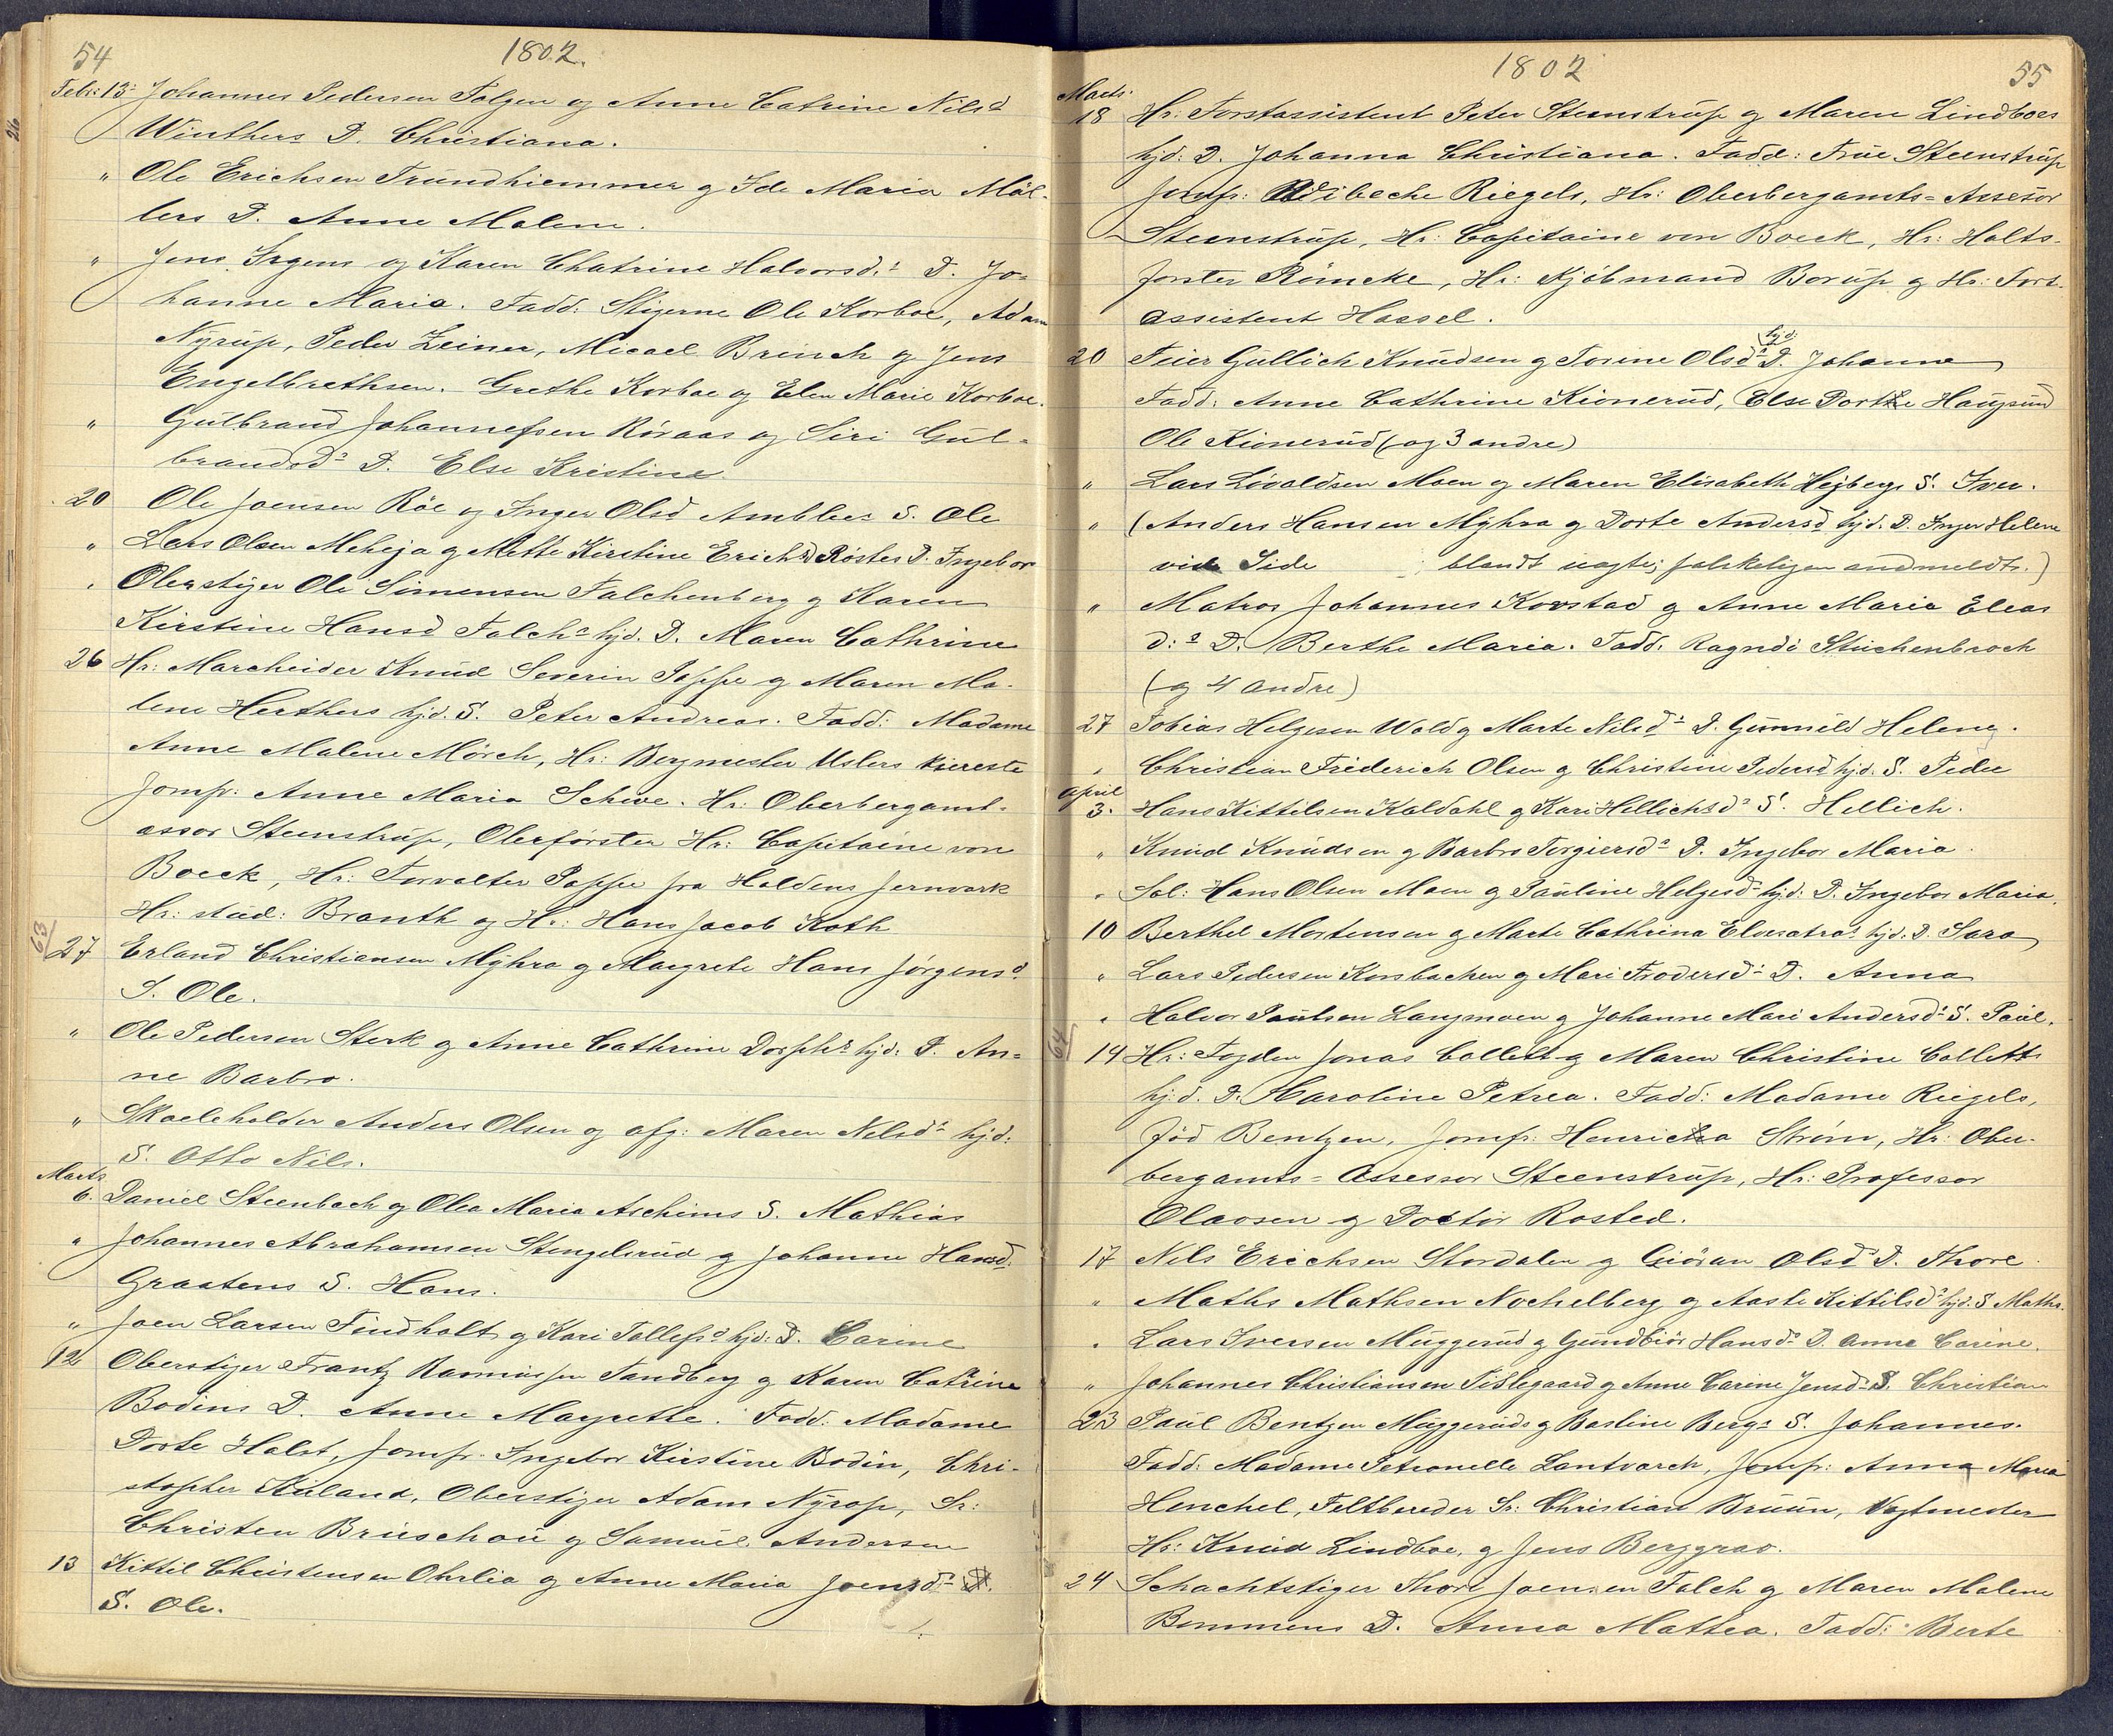 54
1802.
Febr: 13: Johannes Pedersen Tolgen og Anne Catrine Nilsd
Winthers D. Christiana.
" Ole Erichsen Trundhiemmer og Ide Maria Möl-
lers D. Anne Malene.
" Jens Irgens og Karen Chatrine Halvorsd:s D. Jo-
hanne Maria. Fadd: Stigerne Ole Korboe, Adam
Nyrup, Peder Zeiner, Micael Brinch og Jens
Engelbrethsen. Grethe Korboe og Elen Marie Korboe.
" Gulbrand Johannessen Röraas og Siri Gul-
brandsds D. Else Kristine.
20 Ole Joensen Röe og Inger Olsd Ambles S. Ole
" Lars Olsen Meheja og Mette Kirstine Erichsd Röstes D. Ingebor
" Oberstiger Ole Simensen Falchenberg og Karen
Kirstine Hansd Falchs hjd. D. Maren Cathrine
26 Hr: Marcheider Knud Severin Poppe og Maren Ma-
lene Herthers hjd. S. Peter Andreas. Fadd: Madame
Anne Malene Mörch, Hr: Bergmester Uslers kiereste
Jomfr: Anne Maria Schive. Hr: Oberbergamt-
assor Steenstrup, Oberförster Hr: Capitaine von
Boeck, Hr: Forvalter Poppe fra Holdens Jernverk
Hr: stud: Branth og Hr: Hans Jacob Koth
63
27 Erland Christiansen Myhra og Margrete Hans Jörgensd
S. Ole.
" Ole Pedersen Sterk og Anne Cathrine Dorphs hjd: D. An-
ne Barbro.
" Skoleholder Anders Olsen og afg: Maren Nilsds hjd:
S. Otto Nils.
Marts
6. Daniel Steenbach og Olea Maria Aschims S. Mathias
" Johannes Abrahamsen Stengelsrud og Johanne Hansd:
Graatens S. Hans.
" Joen Larsen Findholt og Kari Tollefsd hjd: D. Carine
12 Oberstiger Frantz Rasmussen Sandberg og Karen Catrine
Bodins D. Anne Magrette. Fadd: Madame
Dorte Holst, Jomfr. Ingebor Kirstine Bodin, Chri-
stopher Kiuland, Oberstiger Adam Nyrop, Sr:
Christen Bruschou og Samuel Andersen
13 Kittil Christensen Ohrlia og Anne Maria Joensd:s
S. Ole.
1802
55
Marts.
18 Hr: Forstassistent Peter Steenstrup og Maren Lindboes
hjd: D. Johanna Christiana. Fadd: Frue Steenstrup
Jomfr: Wibecke Riegels, Hr: Oberbergamts-Assesor
Steenstrup, Hr: Capitaine von Boeck, Hr: Holts-
forster Römcke, Hr: Kjöbmand Borup og Hr: Forst-
assistent Hassel.
20 Feier Gullich Knudsen og Torine Olsds hjd. D. Johanne
Fadd: Anne Cathrine Kionerud, Else Dorthe Haugsund
Ole Kionerud (og 3 andre)
" Lars Livoldsen Moen og Maren Elisabeth Hejbergs S. Iver.
" (Anders Hansen Myhra og Dorte Andersd hjd. D. Inger Helene
vide Side blandt uægte, falskeligen andmeldt.)
" Matros Johannes Kovstad og Anne Maria Elias
d:s D. Berthe Maria. Fadd. Ragndi Stuchenbroch
(og 4 andre)
27 Tobias Helgesen Wold og Marte Nilsds D. Gunnild Helene.
" Christian Friderich Olsen og Christine Pedersd hjd. S. Peder
April
3. Hans Kittilsen Koldahl og Kari Hellichsds S. Hellich.
" Knud Knudsen og Barbro Torgiersds D. Ingebor Maria.
" Sol: Hans Olsen Moen og Pauline Helgesds hjd: D. Ingebor Maria.
10 Berthel Mortensen og Marte Cathrina hjd: D. Sara
" Lars Pedersen Korsbachen og Mari Frodersds D. Anna
" Halvor Paulsen Langmoen og Johanne Mari Andersds S. Paul.
64
14 Hr: Fogden Jonas Collett og Maren Christine Colletts
hj:d. D. Karoline Petrea. Fadd: Madame Riegels,
föd Bentzen, Jomfr. Henricka Ström, Hr: Ober-
bergamts-Assessor Steenstrup, Hr: Professor
Olavsen og Doctor Rosted.
17 Nils Erichsen Stordalen og Giöran Olsds D. Thore.
" Maths Mathsen Nochelberg og Aaste Kittilsds hjd. S Maths.
" Lars Iversen Muggerud og Gundbiör Hansds D. Anne Carine.
" Johannes Christiansen Tislegaard og Anne Carine Jensds S. Christian
23 Paul Bentzen Muggeruds og Bastine Bergs S. Johannes.
Fadd: Madame Petronelle Lantvarch, Jomfr: Anna Maria
Henchel, Feltbereder Sr: Christian Bruun, Vagtmester
Hr: Knud Lindboe, og Jens Berggrav.
24 Schachtstiger Thore Joensen Falch og Maren Malene
Bemmens D. Anna Mathea. Fadd: Berte